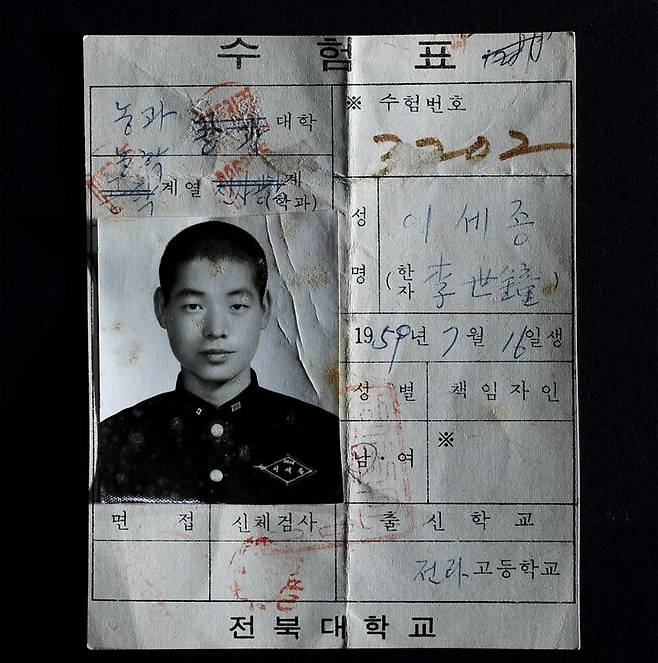 수험표
농과 대학
※ 수험번호
3202
농학 계열 계
(학과)
성명
이세종
(한자 李世鐘)
1959년 7월 16일생
성별
책임자인
남·여
※
이세종
면접
신체검사
출신학교
전라고등학교
전북대학교